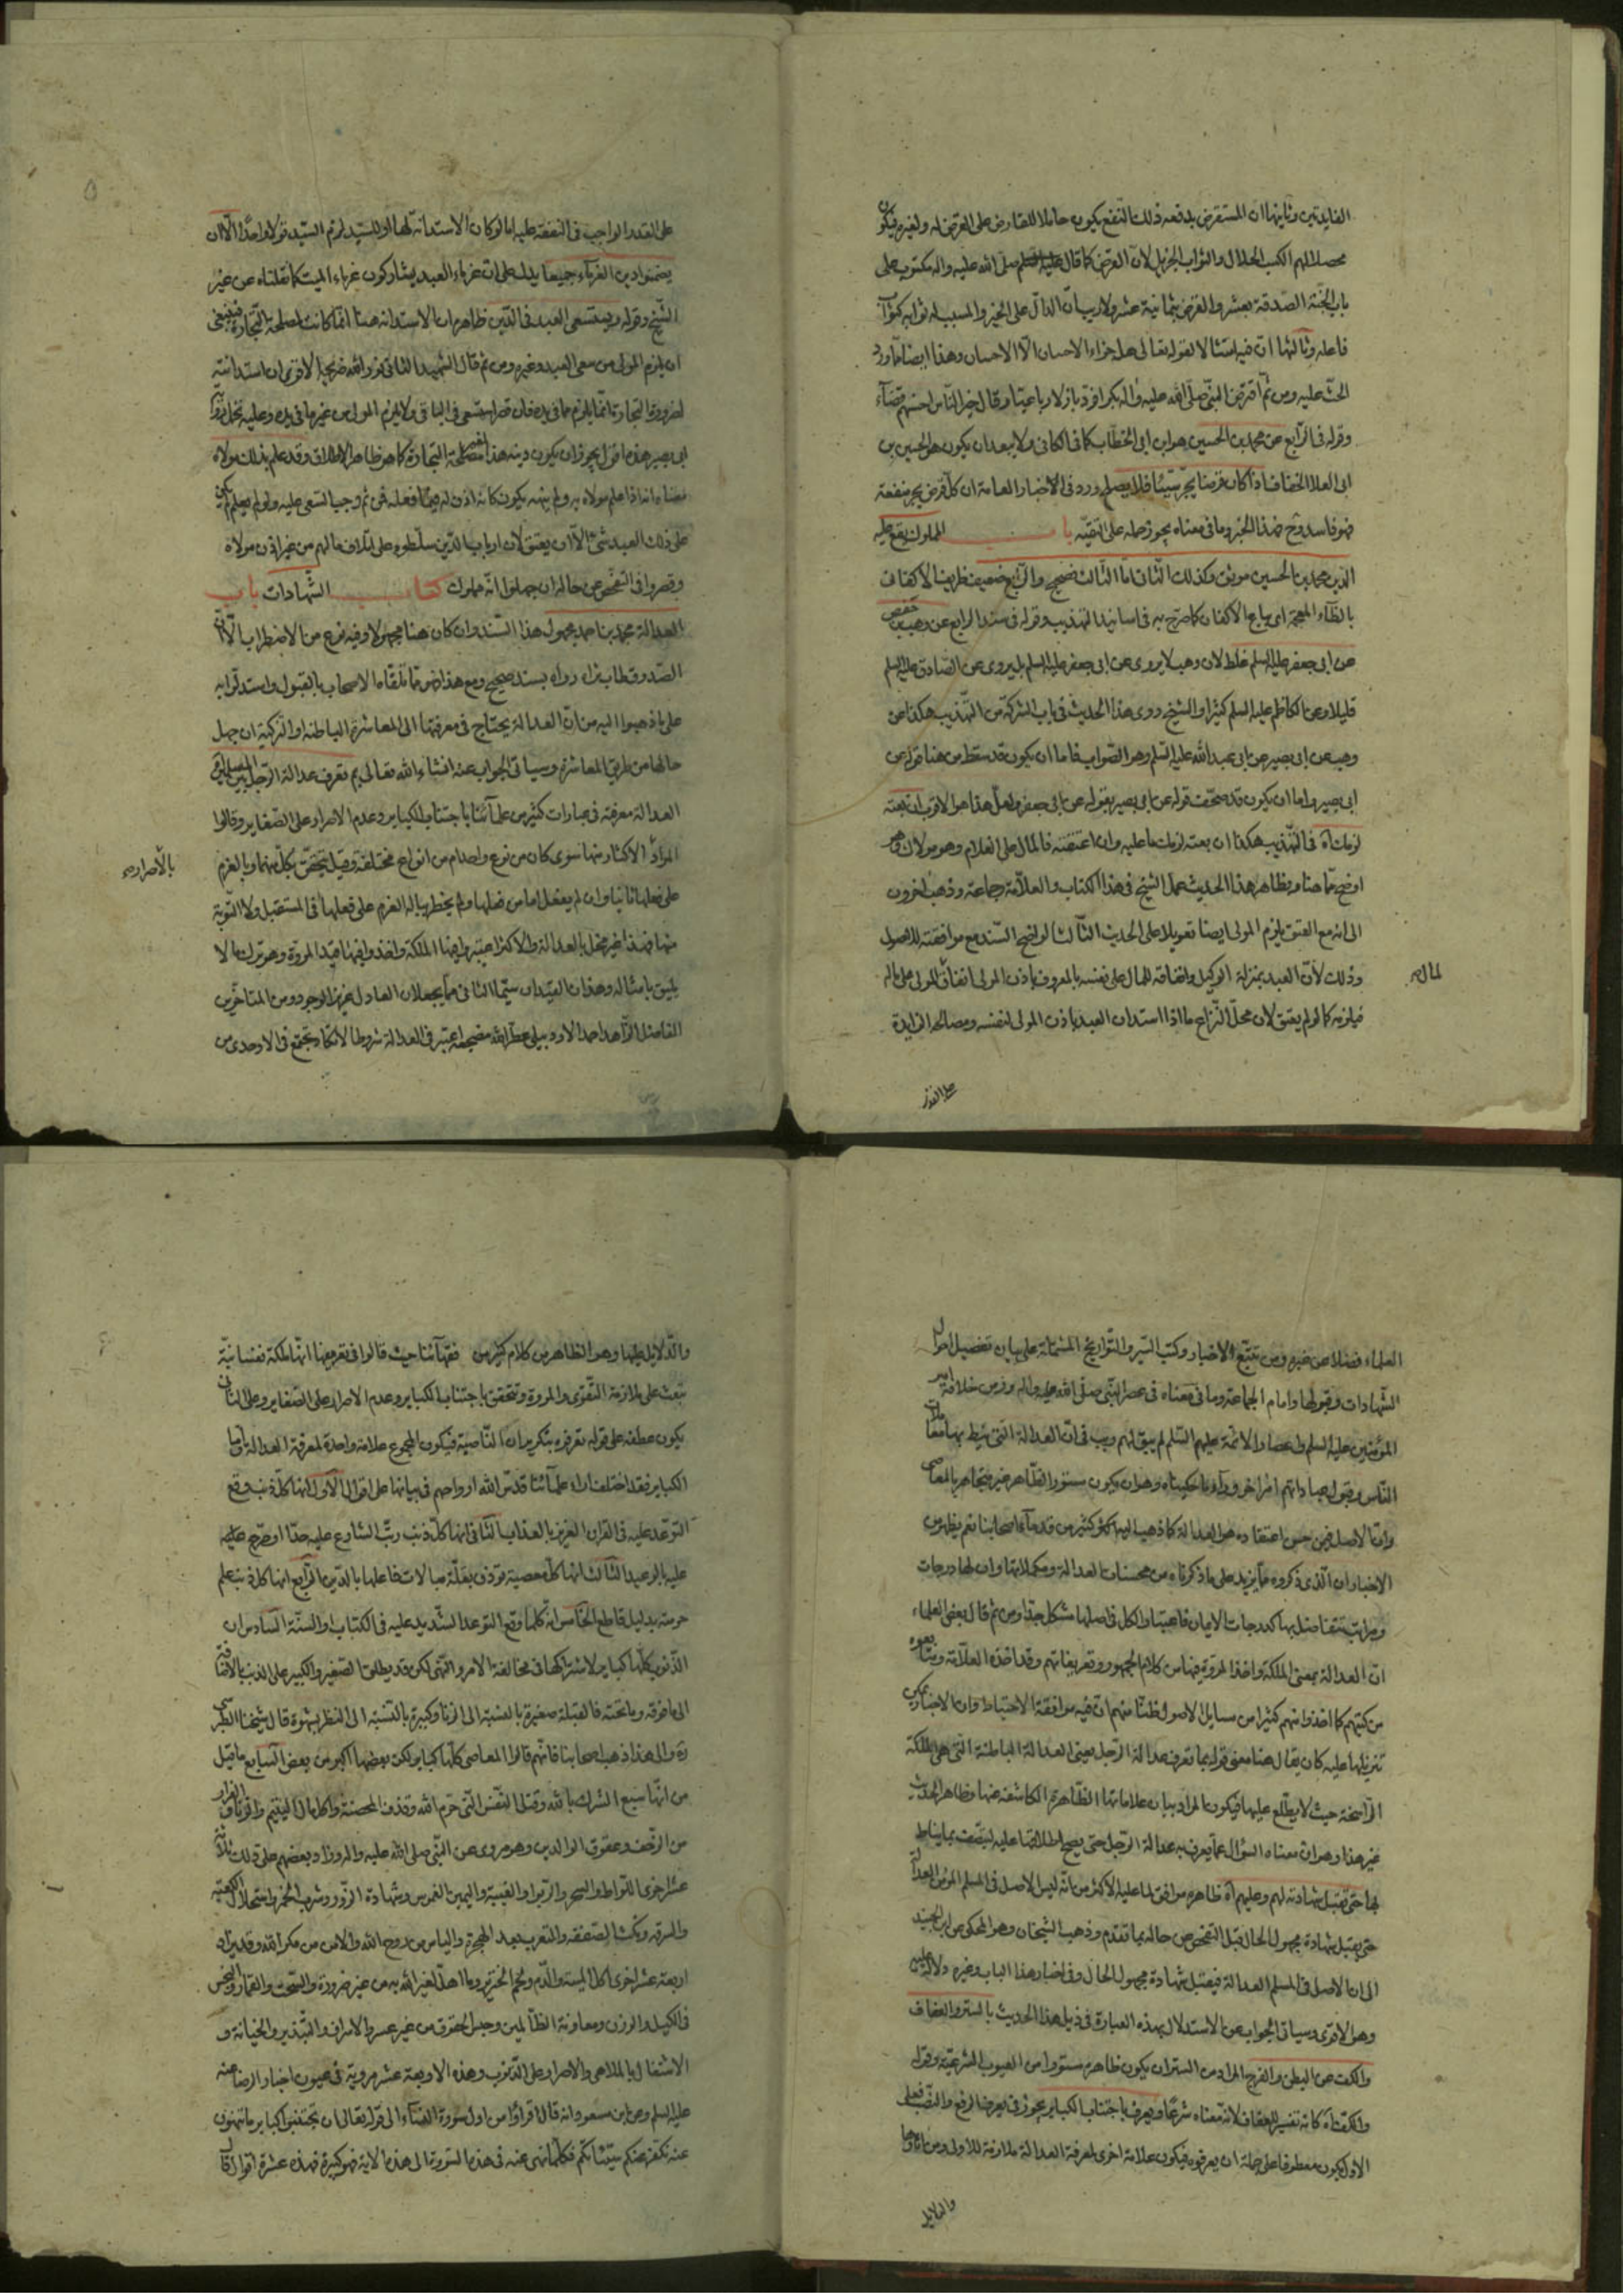 الفايدتين وثانيها ان المستقرض بدفعه ذلك النفع يكون حاملا للمقارض على القرض له ولغيره فيكون
محصلا لهم الكسب الحلال والثواب الجزيل لان القرض كما قال صلى الله عليه واله مكتوب على
باب الجنة الصدقة بعشر والقرض بثمانية عشر ولا ريب ان الدال على الخير والمسبب له ثوابه كثواب
فاعله وثالثها ان فيه امتثالا لقوله تعالى هل جزاء الاحسان الا الاحسان وهذا ايضا مما ورد
الحث عليه ومن ثم اقترض النبي صلى الله عليه واله بكرا فرد بازلا رباعيا وقال خير الناس احسنهم قضاء
وقوله في الرابع عن محمد بن الحسين هو ابن ابي الخطاب كما في الكافي ولا يبعد ان يكون هو الحسين بن
ابي العلا الخفاف اذا كان قرضا يجر شيئا فلا يصلح ورد في الاخبار العامة ان كل قرض يجر منفعة
فهو فاسد وح فهذا الخبر وما في معناه يجوز حمله على التقية باب المملوك يقع عليه
الدين محمد بن الحسين موثق وكذلك الثاني اما الثالث فصحيح والرابع ضعيف ظريف الاكفاني
بالظاء المعجمة اي بياع الاكفان كما صرح به في اسانيد التهذيب وقوله في سند الرابع عن وهيب بن حفص
عن ابي جعفر عليه السلم غلط لان وهيب لا يروى عن ابي جعفر عليه السلم بل يروى عن الصادق عليه السلم
قليلا وعن الكاظم عليه السلم كثيرا والشيخ روى هذا الحديث في باب الشركة من التهذيب هكذا عن
وهيب عن ابي بصير عن ابي عبد الله عليه السلم وهو الصواب فاما ان يكون قد سقط من هنا قوله عن
ابي بصير واما ان يكون قد صحف قوله عن ابي بصير بقوله عن ابي جعفر ولعل هذا هو الاقرب ان بعته
لزمك اه في التهذيب هكذا ان بعته لزمك ما عليه وان اعتقته فالمال على الغلام وهو مولاك وهو
اوضح مما هنا وبظاهر هذا الحديث عمل الشيخ في هذا الكتاب والعلامة وجماعة وذهب اخرون
الى انه مع العتق يلزم المولى ايضا تعويلا على الحديث الثالث لوضوح السند مع موافقته للاصول
وذلك لان العبد بمنزلة الوكيل وانفاقه للمال على نفسه بالمعروف باذن المولى انفاق للمولى على ماله
لماله
فيلزمه كما لو لم يعتق لان محل النزاع ما اذا استدان العبد باذن المولى لنفسه ومصالحه الزايدة
على القدر
على القدر الواجب في النفقة عليه اما لو كان الاستدانة لها او للسيد لزم السيد قولا واحدا الا ان
يضمنوا دين الغرماء جميعا يدل على ان غرماء العبد يشاركون غرماء الميت كما نقلناه عن غير
الشيخ وقوله ويستسعى العبد في الدين ظاهره ان الاستدانة هنا انما كانت لمصلحة التجارة فينبغي
ان يلزم المولى من سعي العبد وغيره ومن ثم قال الشهيد الثاني نور الله ضريحه الاقوى ان استدانته
لضرورة التجارة انما يلزم ما في يده فان قصر استسعى في الباقي ولا يلزم المولى من غير ما في يده وعليه تحمل رواية
ابي بصير هذه اقول يجوز ان يكون دينه هذا لغير مصلحة التجارة كما هو ظاهر الاطلاق وقد علم بذلك مولاه
معناه انه اذا علم مولاه به ولم ينهه يكون كانه اذن له فيما فعله فمن ثم وجب السعي عليه ولو لم يعلم لم يكن
على ذلك العبد شئ الا ان يعتق لان ارباب الدين سلطوه على اتلاف مالهم من غير اذن مولاه
وقصروا في التفحص عن حاله ان جهلوا انه مملوك كتاب الشهادات باب
العدالة محمد بن احمد مجهول هذا السند وان كان هنا مجهولا وفيه نوع من الاضطراب الا ان
الصدوق طاب ثراه رواه بسند صحيح ومع هذا فهو مما تلقاه الاصحاب بالقبول واستدلوا به
على ما ذهبوا اليه من ان العدالة يحتاج في معرفتها الى المعاشرة الباطنة والتزكية ان جهل
حالها من طريق المعاشرة وسياتي الجواب عنه انشاء الله تعالى بم تعرف عدالة الرجل بين المسلمين
العدالة معرفته في عبارات كثير من علمائنا باجتناب الكباير وعدم الاصرار على الصغاير وقالوا
المراد الاكثار منها سوى كان من نوع واحد ام من انواع مختلفة وقيل يتحقق بكل منهما وبالعزم
بالاصرار
على فعلها ثانيا وان لم يفعل اما من فعلها ولم يخطر بباله العزم على فعلها في المستقبل ولا التوبة
منها فهذا غير مخل بالعدالة والاكثر اعتبروا فيها الملكة واخذوا فيها قيد المروة وهو ترك ما لا
يليق بامثاله وهذان القيدان سيما الثاني مما يجعلان العادل عزيز الوجود ومن المتاخرين
الفاضل الزاهد احمد الاردبيلي عطر الله مضجعه اعتبر في العدالة شروطا لا تكاد تجتمع في الاوحدي من
العلماء فضلا عن غيره ومن تتبع الاخبار وكتب السير والتواريخ المشتملة على بيان تفصيل احوال
الشهادات وقبولها وامام الجماعة وما في معناه في عصر النبي صلى الله عليه واله وزمن خلافة امير
المؤمنين عليه السلم واعصار الائمة عليهم السلم لم يبق لهم ريب في ان العدالة التي نيط بها معاملات
الناس وقبول عباداتهم امر اخر وراء ما حكيناه وهو ان يكون مستور الظاهر غير متجاهر بالمعاصي
وان الاصل فيمن حسن اعتقاده هو العدالة كما ذهب اليه كثير من قدماء اصحابنا نعم يظهر من
الاخبار ان الذي ذكروه مما يزيد على ما ذكرناه من محسنات العدالة ومكملاتها وان لها درجات
ومراتب تتفاضل بها كدرجات الايمان فاعتبار الكل في اصلها مشكل جدا ومن ثم قال بعض العلماء
ان العدالة بمعنى الملكة واخذ المروة فيها من كلام الجمهور وتعريفاتهم وقد اخذه العلامة ومتابعوه
من كتبهم كما اخذوا منهم كثيرا من مسايل الاصول ظنا منهم ان فيه موافقة الاحتياط وان الاخبار يمكن
تنزيلها عليه كان يقال هنا معنى قوله بما تعرف عدالة الرجل يعني العدالة الباطنة التي هي الملكة
الراسخة حيث لا يطلع عليها فيكون المراد بيان علاماتها الظاهرة الكاشفة عنها وظاهر الحديث
غير هذا وهو ان معناه السؤال عما يعرف به عدالة الرجل حتى يصح اطلاقها عليه ليتصف بما يناط
بها حتى تقبل شهادته لهم وعليهم اه ظاهره موافق لما عليه الاكثر من انه ليس الاصل في المسلم المؤمن العدالة
حتى يقبل شهادة مجهول الحال قبل التفحص عن حاله بما تقدم وذهب الشيخان وهو المحكى عن ابن الجنيد
الى ان الاصل في المسلم العدالة فيقبل شهادة مجهول الحال وفي اخبار هذا الباب وغيره دلالة عليه
وهو الاقوى وسياتي الجواب عن الاستدلال بهذه العبارة في ذيل هذا الحديث بالستر والعفاف
والكف عن البطن والفرج المراد من الستر ان يكون ظاهره مستورا من العيوب الشرعية وقوله
والكف اه كانه تفسير للعفاف لانه معناه شرعا ويعرف باجتناب الكباير يجوز في يعرف الرفع والنصب فعلى
الاول يكون معطوفا على جملة ان يعرفوه فيكون علامة اخرى لمعرفة العدالة ملازمة للاولى ومن اثارها
والدلايل
والدلايل عليها وهو الظاهر من كلام كثير من فقهائنا حيث قالوا في تعريفها انها ملكة نفسانية
تبعث على ملازمة التقوى والمروة وتتحقق باجتناب الكباير وعدم الاصرار على الصغاير وعلى الثاني
يكون عطفه على قوله تعرفوه بتكرير ان الناصبة فيكون المجموع علامة واحدة لمعرفة العدالة واما
الكباير فقد اختلف اراء علمائنا قدس الله ارواحهم في بيانها على اقوال الاول انها كل ذنب وقع
التوعد عليه في القران العزيز بالعذاب الثاني انها كل ذنب رتب الشارع عليه حدا او صرح عليه
عليه بالوعيد الثالث انها كل معصية توذن بقلة مبالات فاعلها بالدين الرابع انها كل ذنب علم
حرمته بدليل قاطع الخامس انه كلما وقع التوعد الشديد عليه في الكتاب والسنة السادس ان
الذنوب كلها كباير لاشتراكها في مخالفة الامر والنهي لكن قد يطلق الصغير والكبير على الذنب بالاضافة
الى ما فوقه وما تحته فالقبلة صغيرة بالنسبة الى الزنا وكبيرة بالنسبة الى النظر بشهوة قال شيخنا الطبرسي
ره والى هذا ذهب اصحابنا فانهم قالوا المعاصي كلها كباير لكن بعضها اكبر من بعض السابع ما قيل
من انها سبع الشرك بالله وقتل النفس التي حرم الله وقذف المحصنة واكل مال اليتيم والزنا والفرار
من الزحف وعقوق الوالدين وهو مروى عن النبي صلى الله عليه واله وزاد بعضهم على ذلك ثلاثة
عشر اخرى اللواط والسحر والربوا والغيبة واليمين الغموس وشهادة الزور وشرب الخمر واستحلال الكعبة
والسرقة ونكث الصفقة والتعرب بعد الهجرة والياس من روح الله والامن من مكر الله وقد يزاد
اربعة عشر اخرى اكل الميتة والدم ولحم الخنزير وما اهل لغير الله به من غير ضرورة والسحت والقمار والبخس
في الكيل والوزن ومعاونة الظالمين وحبس الحقوق من غير عسر والاسراف والتبذير والخيانة و
الاشتغال بالملاهي والاصرار على الذنوب وهذه الاربعة عشر مروية في عيون اخبار الرضا عنه
عليه السلم وعن ابن مسعود انه قال اقراوا من اول سورة النساء الى قوله تعالى ان تجتنبوا كباير ما تنهون
عنه نكفر عنكم سيئاتكم فكلما نهى عنه في هذه السورة الى هذه الاية فهو كبيرة فهذه عشرة اقوال قال